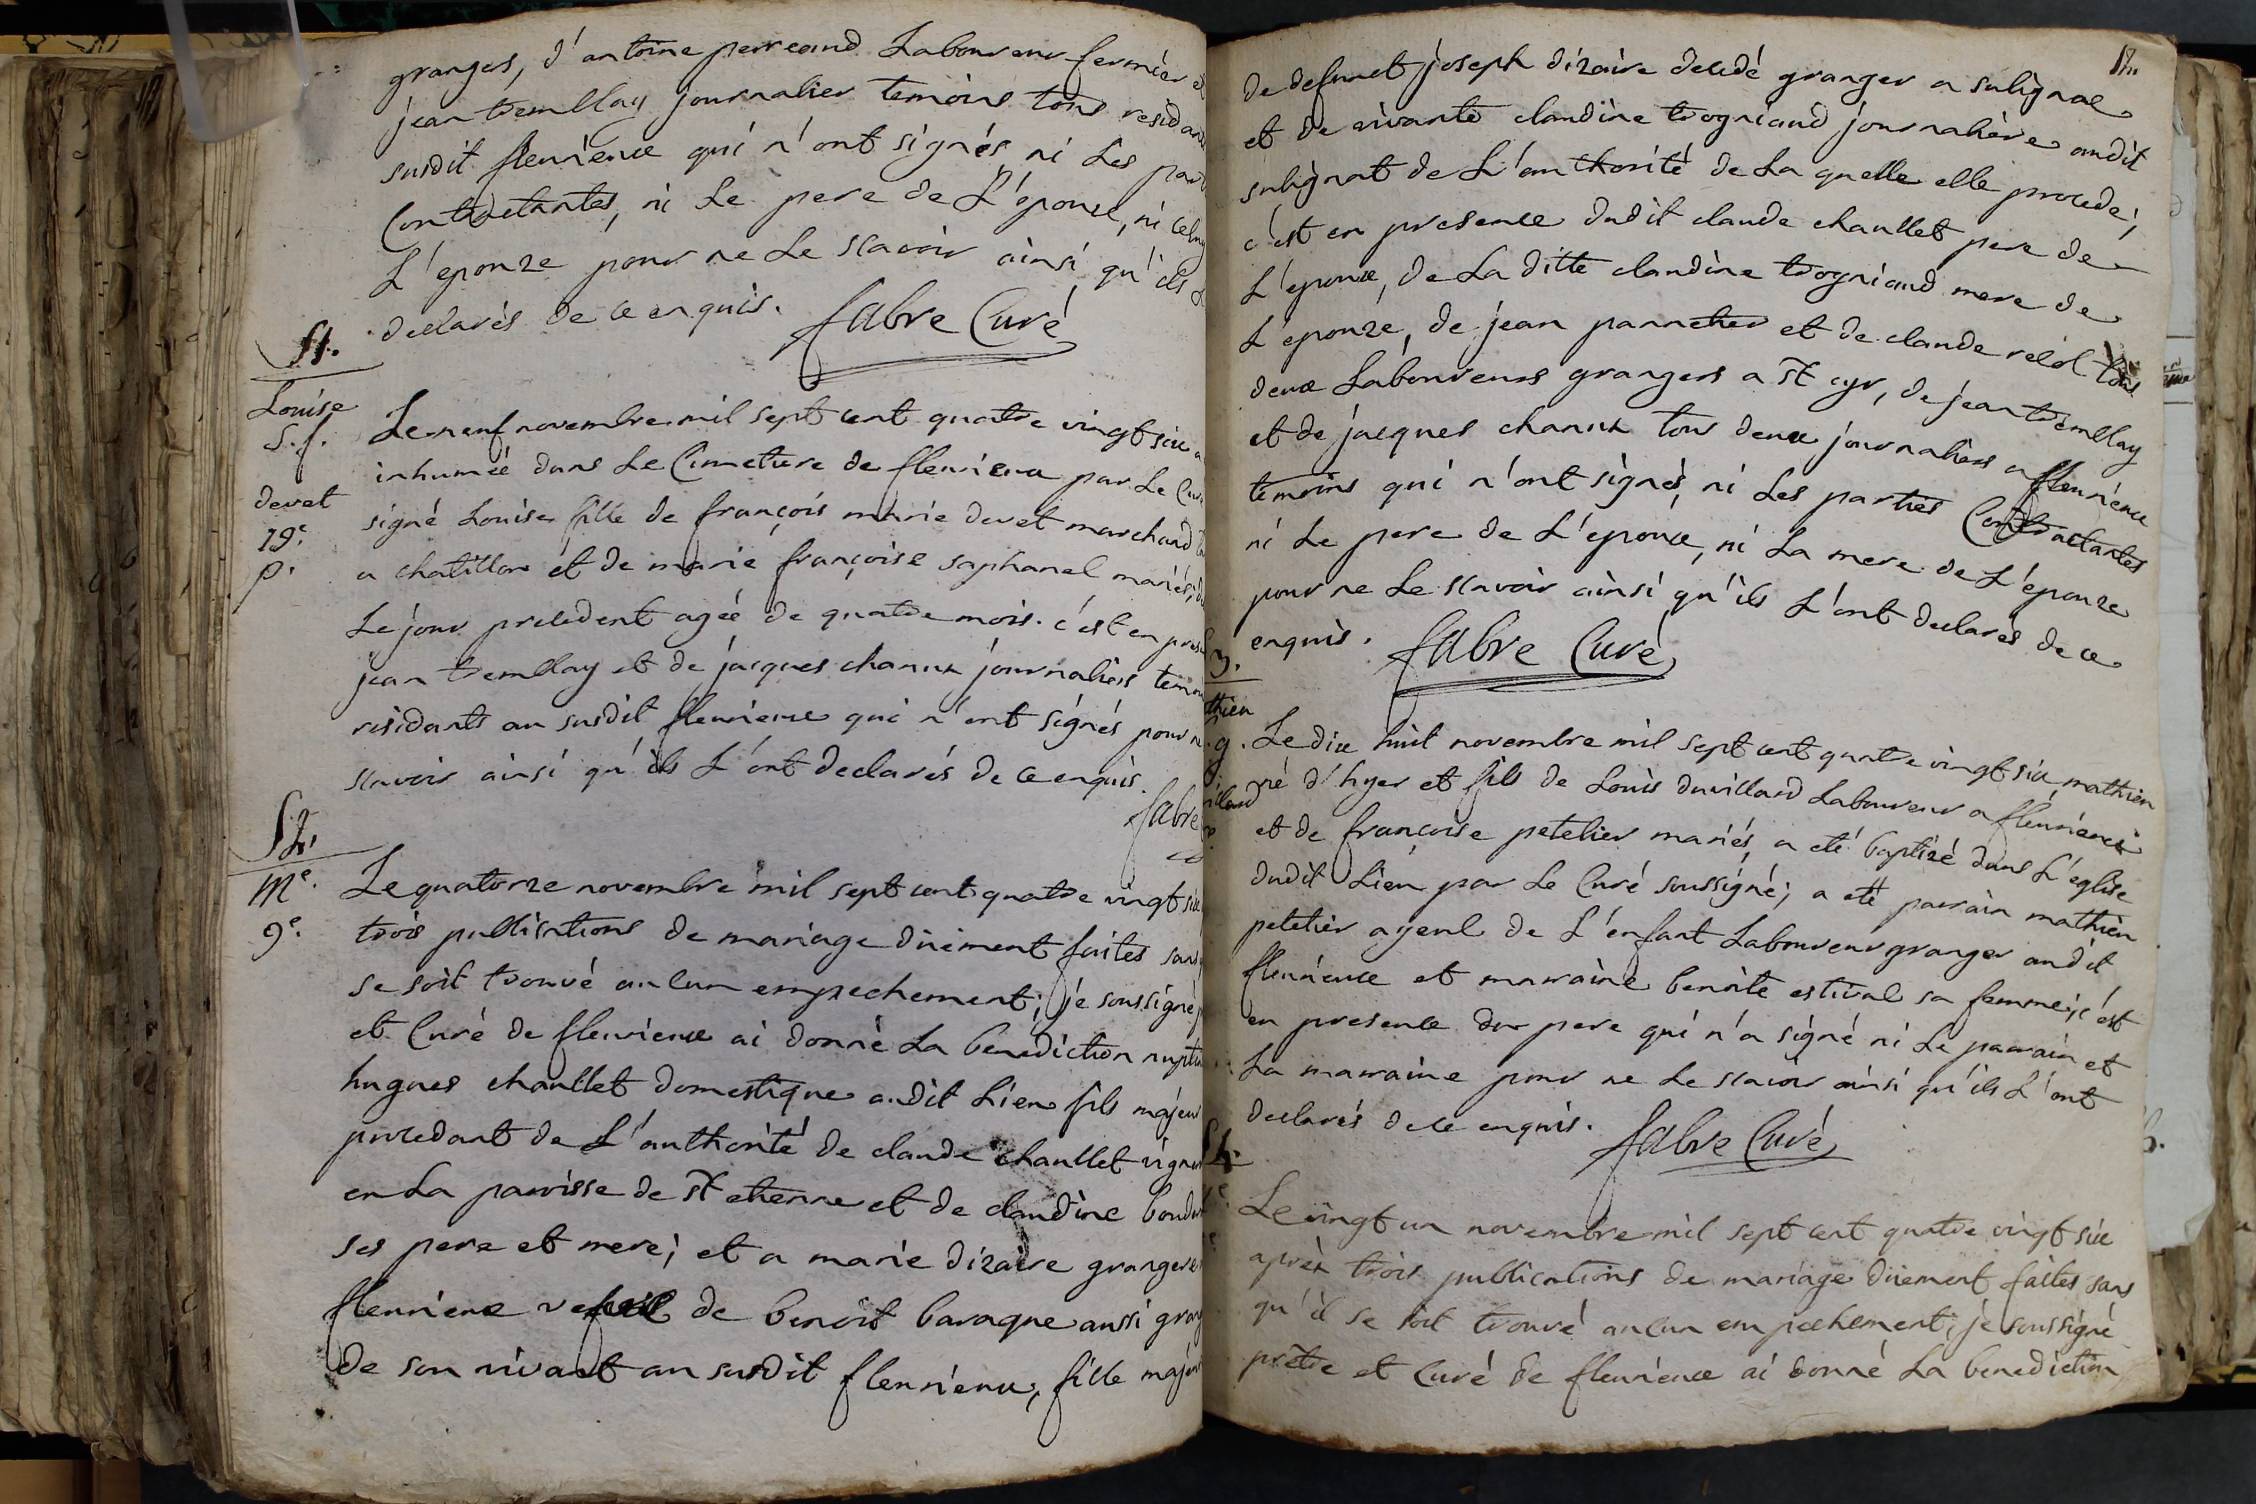 grangers, d'antoine perreaud Laboureur fermier et
jean tremblay journalier temoins tous residants
susdit fleurieux qui n'ont signés, ni Les part
Contractantes, ni Le pere de L'epoux, ni celuy
L'epouze pour ne Le scavoir ainsi qu'ils L
declarés de ce enquis. fabre Curé
51.
Louise
S. f.
devet
19e
p.
Le neuf novembre mil sept cent quatre vingt six a
inhumée dans Le Cimetiere de fleurieux par Le Curé
signé Louise fille de françois marie devet marchand
a chatillon et de marie françoise saphanel mariés,
Le jour precedent agée de quatre mois. c'est en prese
jean tremblay et de jacques chanux journaliers temoi
residants au susdit fleurieux qui n'ont signés pour ne
scavoir ainsi qu'ils L'ont declarés de ce enquis.
fabre
52.
Me.
9e.
Le quatorze novembre mil sept cent quatre vingt six
trois publications de mariage düement faites sans
se soit trouvé aucun empechement; je soussigné p
et Curé de fleurieux ai donné La benediction nuptia
hugues chaullet domestique audit Lieu fils majeur
procedant de L'authorité de claude chaullet vigner
en La parroisse de St etienne et de claudine
ses pere et mere; et a marie dizaire grangere
fleurieux veuve de benoit baraque aussi grang
de son vivant au susdit fleurieux, fille majeur
de defunct joseph dizaire decedé granger a sulignat
et de vivante claudine trogniaud journaliere audit
sulignat de L'authorité de La quelle elle procede;
c'est en presence dudit claude chaullet pere de
L'epoux, de La ditte claudine trogniaud mere de
L'epouze, de jean pannetier et de claude tous
deux Laboureurs grangers a St cyr, de jean tremblay
et de jacques chanux tous deux journaliers a fleurieux
temoins qui n'ont signés, ni Les parties Contractantes
ni Le pere de L'epoux, ni La mere de L'epouze
pour ne Le scavoir ainsi qu'ils L'ont declarés de ce
enquis. fabre Curé
3.
thieu
g.
illard
Le dix huit novembre mil sept cent quatre vingt six, mathieu
né d'hyer et fils de Louis duvillard Laboureur a fleurieux
et de françoise petelier mariés, a eté baptizé dans L'eglise
dudit Lieu par Le Curé soussigné; a eté parrain mathieu
petelier ayeul de L'enfant Laboureur granger audit
fleurieux et marraine benoite estival sa femme; c'est
en presence du pere qui n'a signé ni Le parrain et
La marraine pour ne Le scavoir ainsi qu'ils L'ont
declarés de ce enquis. fabre Curé
54.
Le vingt un novembre mil sept cent quatre vingt six
après trois publications de mariage düement faites sans
qu'il se soit trouvé aucun empechement; je soussigné
prêtre et Curé de fleurieux ai donné La benediction